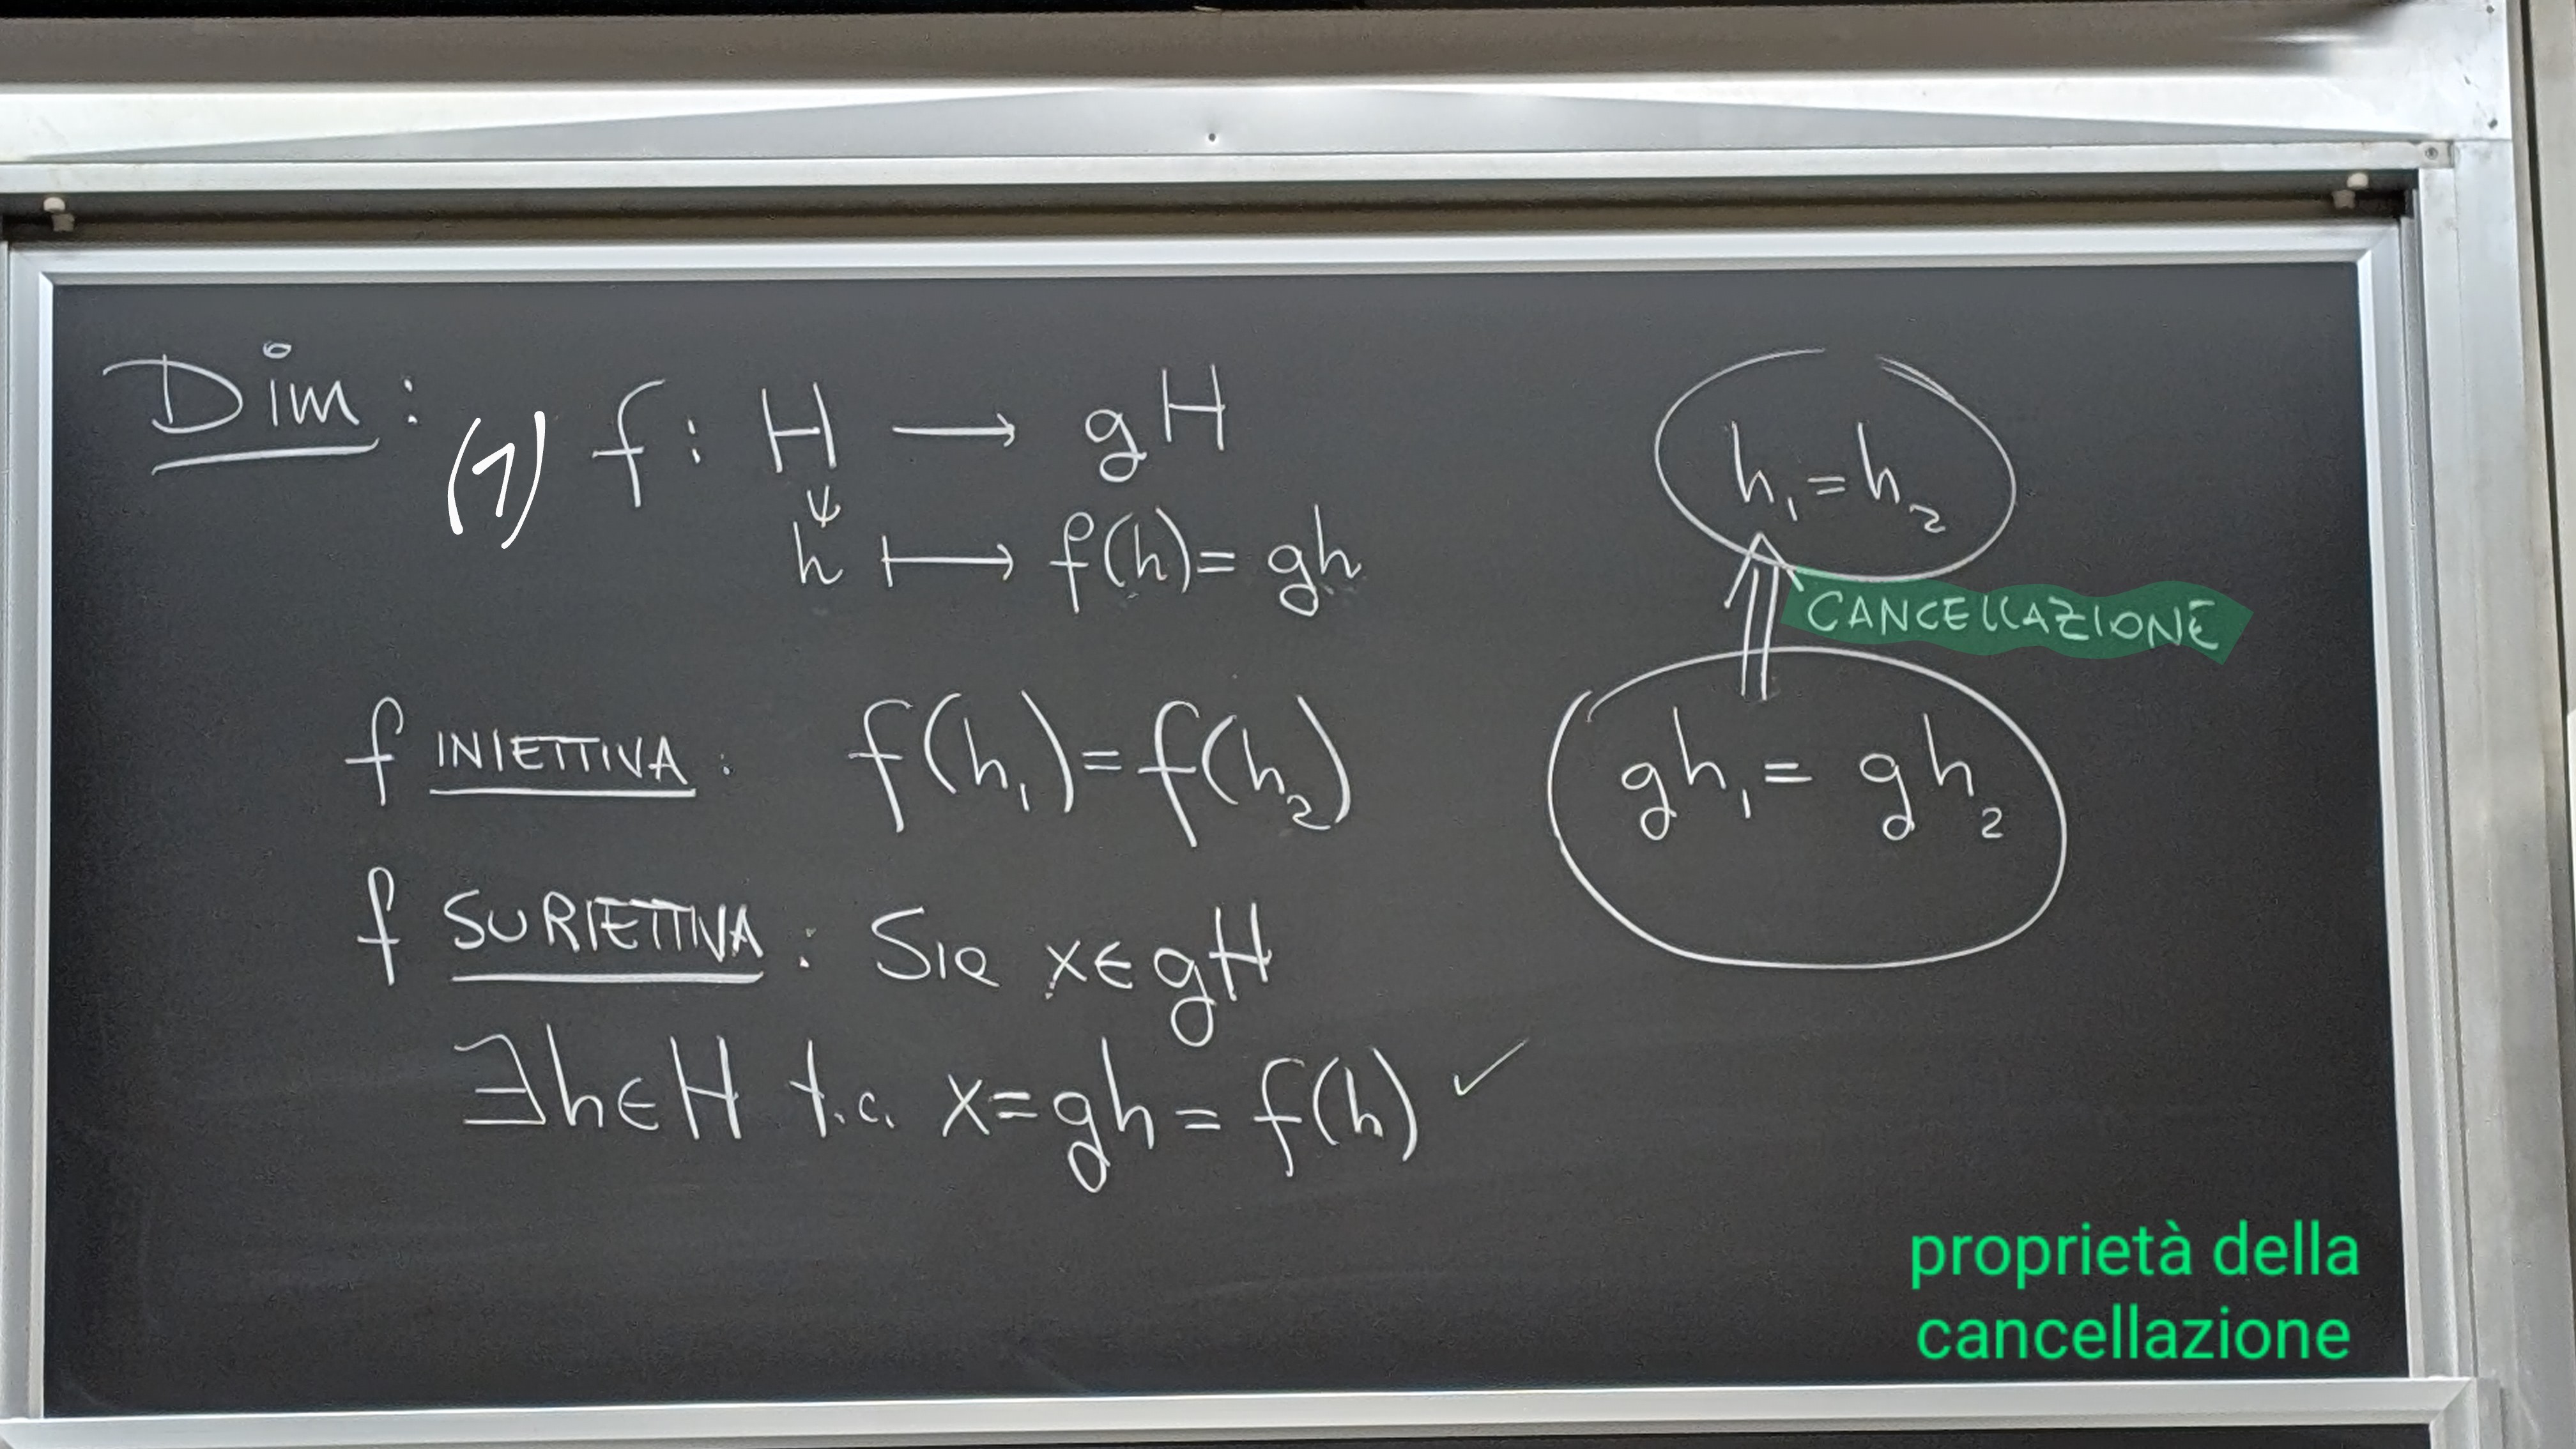 Dim: (1) f: H → gH
h ↦ f(h) = gh
f INIETTIVA: f(h₁) = f(h₂)
f SURIETTIVA: Sia x ∈ gH
∃ h ∈ H t.c. x = gh = f(h) ✓
h₁ = h₂
⇑ CANCELLAZIONE
gh₁ = gh₂
proprietà della
cancellazione